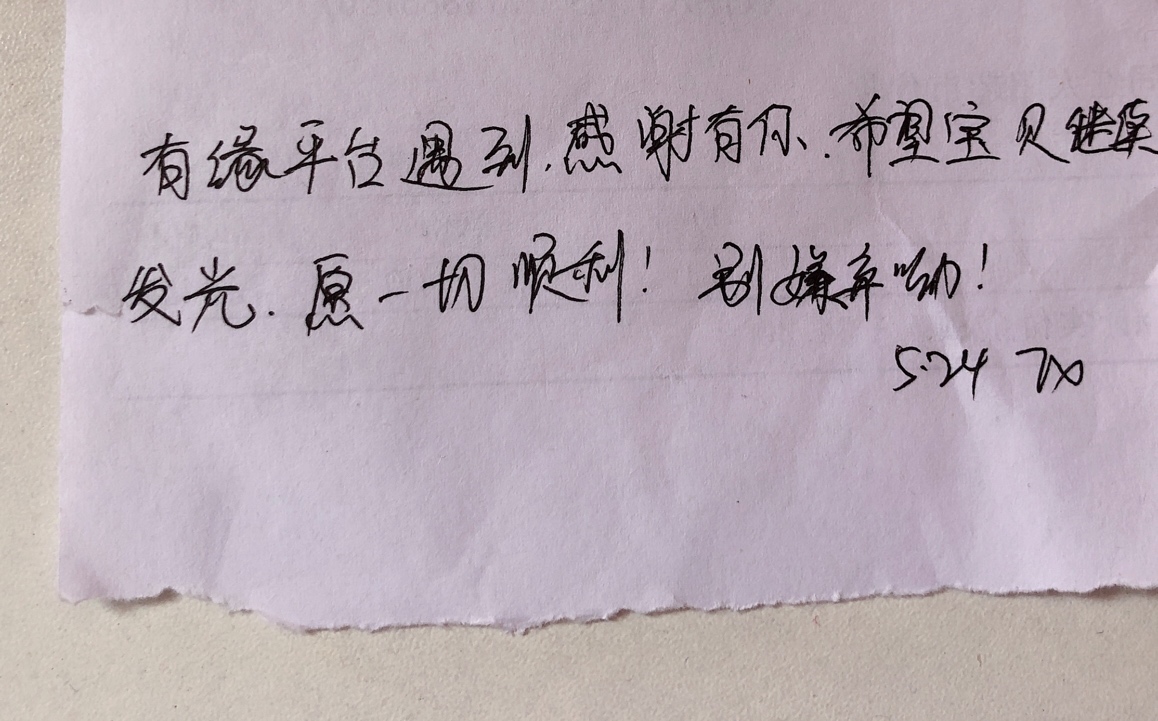 有缘平台遇到.感谢有你.希望宝贝继续
发光.愿一切顺利！别嫌弃呦！
5.24 TX